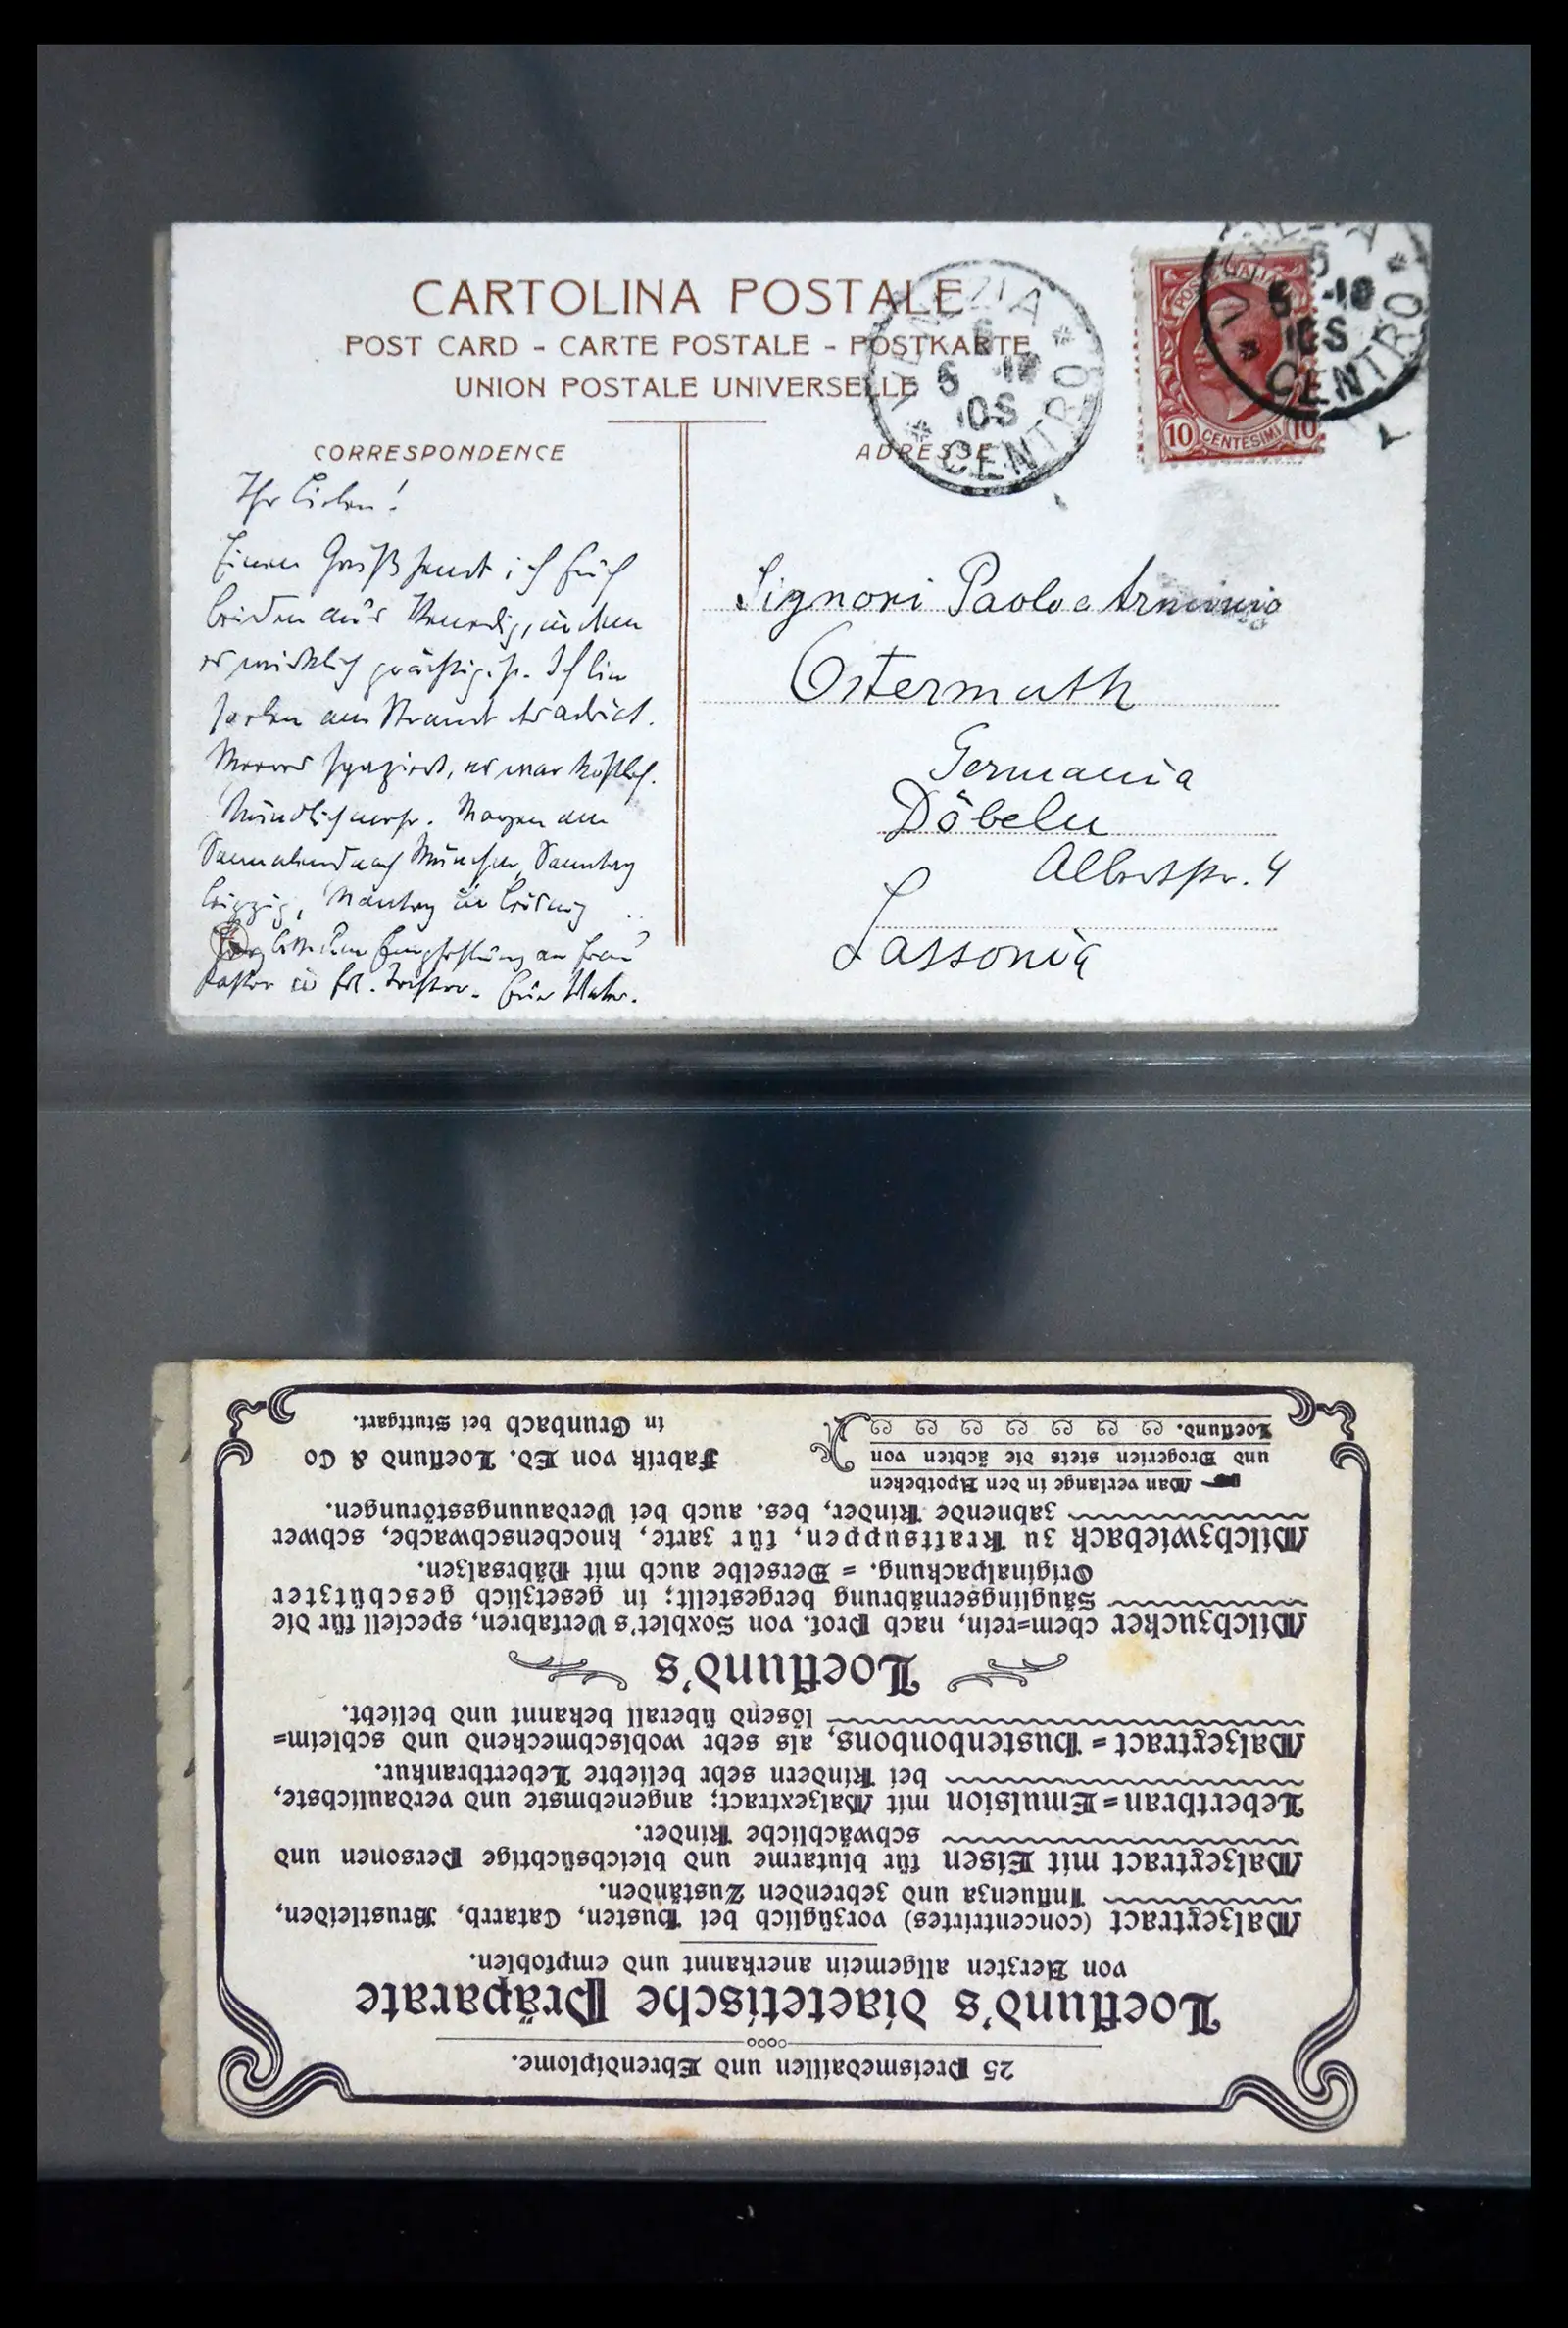 CARTOLINA POSTALE
POST CARD - CARTE POSTALE - POSTKARTE
UNION POSTALE UNIVERSELLE
VENEZIA
CENTRO
VENEZIA
CENTRO
POSTE ITALIANE
10 CENTESIMI 10
CORRESPONDENCE
ADRESSE
Ihr Lieben!
Einen Gruß sendt ich Euch
beiden aus Venedig, in dem
es wirklich prächtig. Ich bin
soeben am Strand des adriat.
Meeres spaziert, es war köstlich.
Mündlich mehr. Morgen
Sonnabend nach München, Sonntag
Leipzig, Montag in
Empfehlung an Frau
Pastor u. Frl. Tochter.
Signori Paolo e Arminio
Ostermuth
Germania
Döbeln
Albertstr. 4
Sassonia
25 Preismedaillen und Ehrendiplome.
Loeflund's diaetetische Präparate
von Aerzten allgemein anerkannt und empfohlen.
Malzextract (concentrirtes) vorzüglich bei Husten, Catarrh, Brustleiden,
Influenza und zehrenden Zuständen.
Malzextract mit Eisen für blutarme und bleichsüchtige Personen und
schwächliche Kinder.
Leberthran=Emulsion mit Malzextract; angenehmste und verdaulichste,
bei Kindern sehr beliebte Leberthrankur.
Malzextract=Hustenbonbons, als sehr wohlschmeckend und schleim=
lösend überall bekannt und beliebt.
Loeflund's
Milchzucker chem=rein, nach Prof. von Soxhlet's Verfahren, speciell für die
Säuglingsernährung hergestellt; in gesetzlich geschützter
Originalpackung. = Derselbe auch mit Nährsalzen.
Milchzwieback zu Kraftsuppen, für zarte, knochenschwache, schwer
zahnende Kinder, bes. auch bei Verdauungsstörungen.
Man verlange in den Apotheken
und Drogerien stets die ächten von
Loeflund.
Fabrik von Ed. Loeflund & Co
in Grunbach bei Stuttgart.